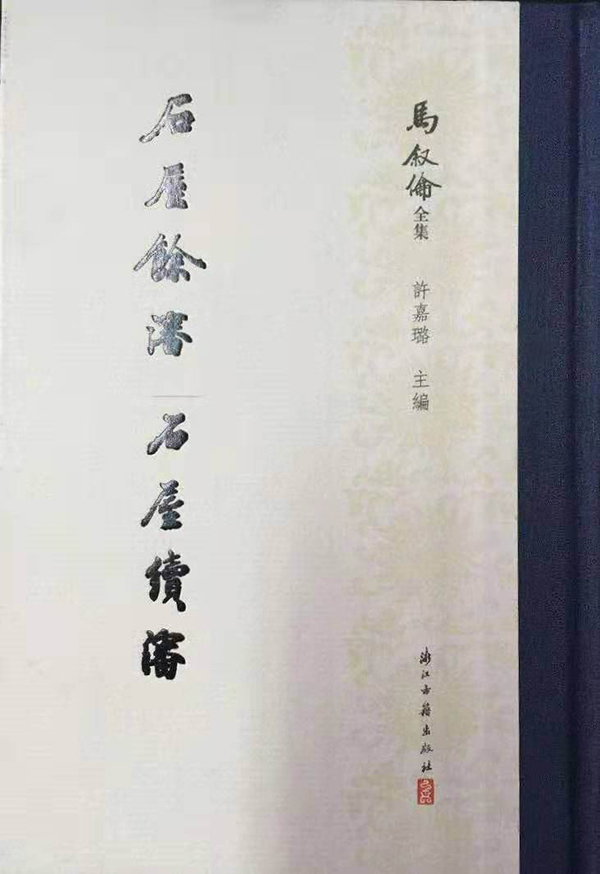 馬叙倫全集 許嘉璐 主編
石屋餘瀋
石屋續瀋
浙江古籍出版社